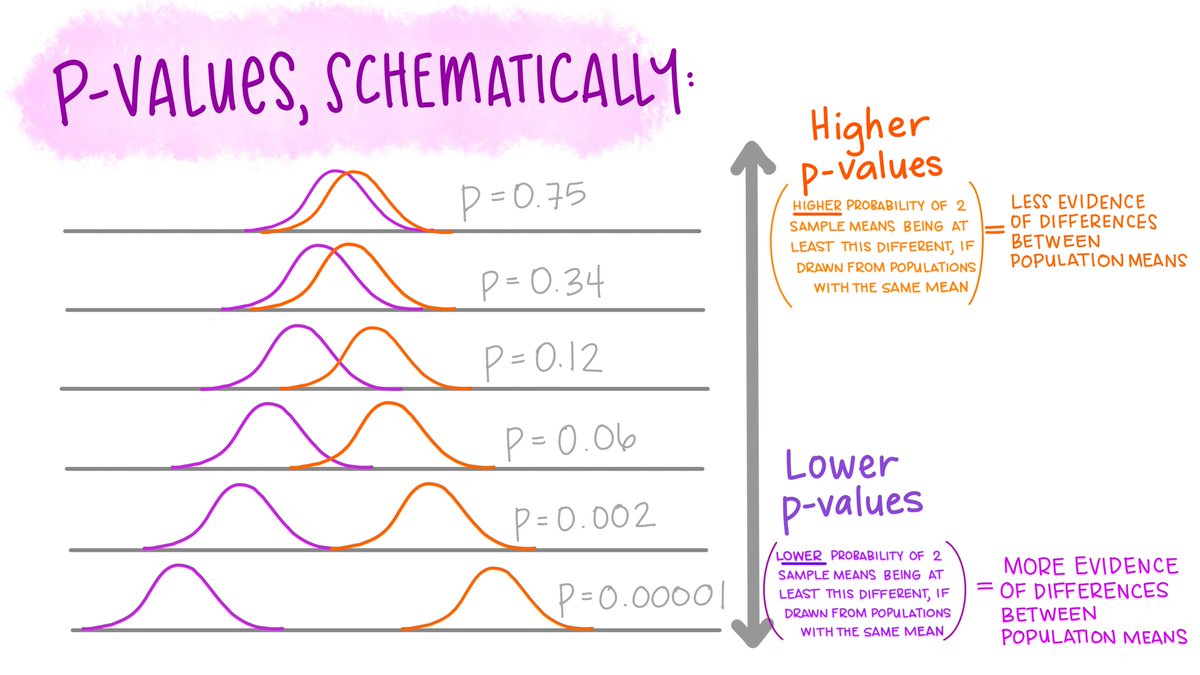 P-VALUES, SCHEMATICALLY:
P = 0.75
P = 0.34
P = 0.12
P = 0.06
P = 0.002
P = 0.00001
Higher
p-values
(HIGHER PROBABILITY OF 2
SAMPLE MEANS BEING AT
LEAST THIS DIFFERENT, IF
DRAWN FROM POPULATIONS
WITH THE SAME MEAN)
=
LESS EVIDENCE
OF DIFFERENCES
BETWEEN
POPULATION MEANS
Lower
p-values
(LOWER PROBABILITY OF 2
SAMPLE MEANS BEING AT
LEAST THIS DIFFERENT, IF
DRAWN FROM POPULATIONS
WITH THE SAME MEAN)
=
MORE EVIDENCE
OF DIFFERENCES
BETWEEN
POPULATION MEANS